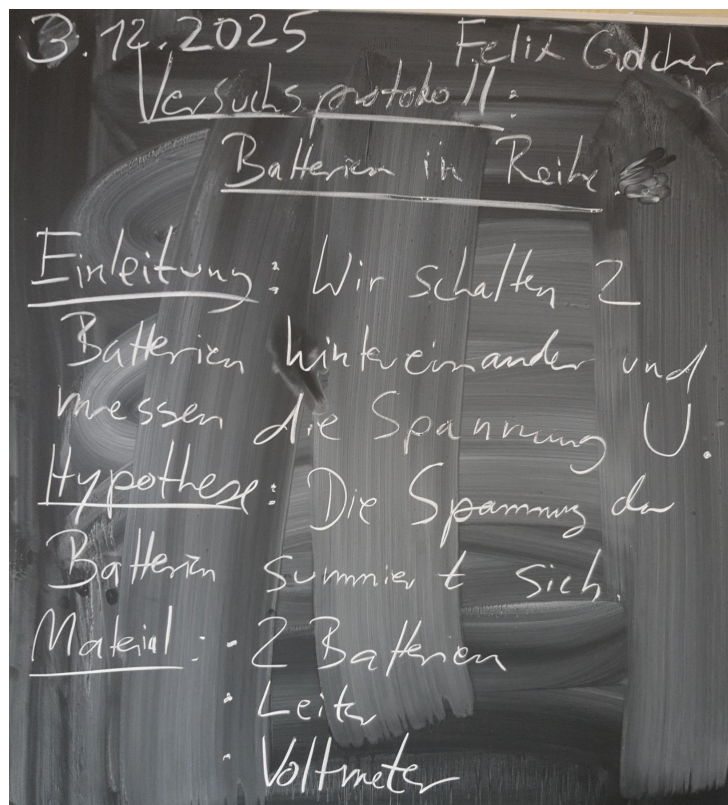 3.12.2025 Felix Golcher
Versuchsprotokoll:
Batterien in Reihe.
Einleitung: Wir schalten 2
Batterien hintereinander und
messen die Spannung U.
Hypothese: Die Spannung der
Batterien summiert sich.
Material: - 2 Batterien
- Leiter
- Voltmeter